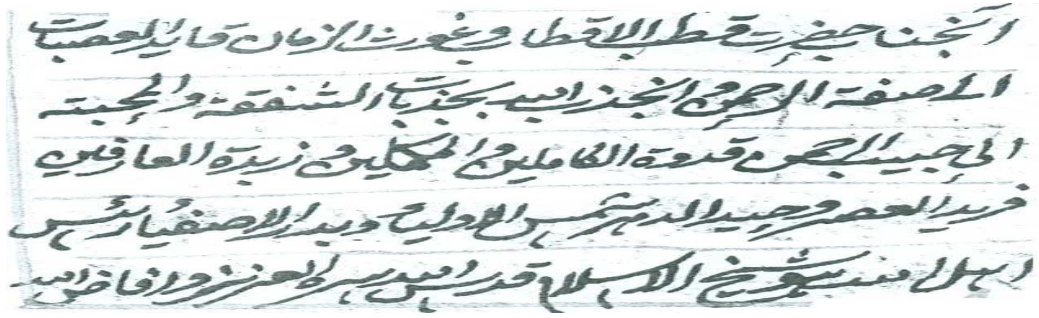 آنجناب حضرت قطب الاقطاب وغوث الزمان قايد العصبات
الى صفة الرحمن وانجذب اليه بجذبات الشفقة والمحبته
الى حبيب الرحمن قدوة الكاملين والمكملين وزبدة العارفين
فريد العصر وحيد الدهر شمس الاوليا وبدر الاصفيا رئيس
اهل شيخ الاسلام قدس الله سره العزيز وافاض الله